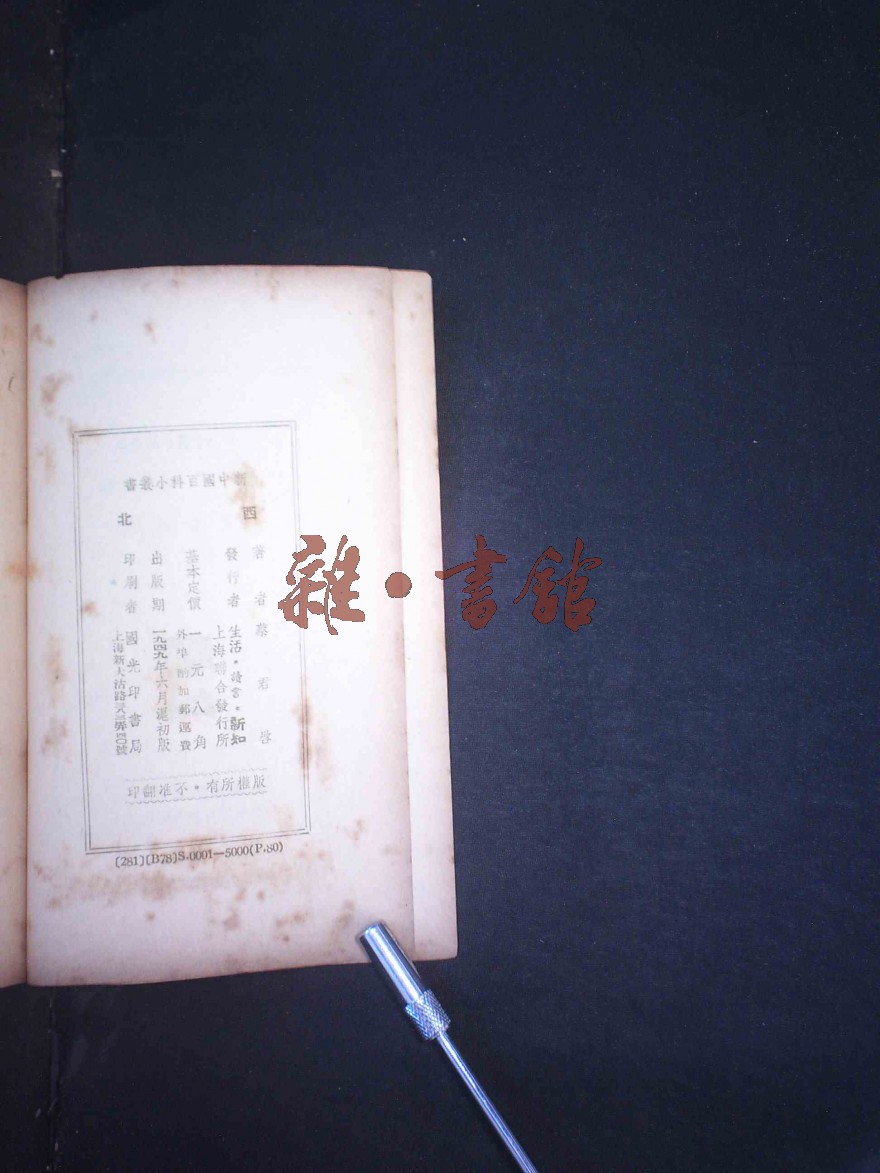 新中國百科小叢書
西北
著者 蔡君啓
發行者 生活·讀書·新知
上海聯合發行所
基本定價 一元八角
外埠酌加郵運費
出版期 一九四九年六月滬初版
印刷者 國光印書局
上海新大沽路
版權所有·不准翻印
(281)(B78)S.0001—5000(P.80)
雜·書館